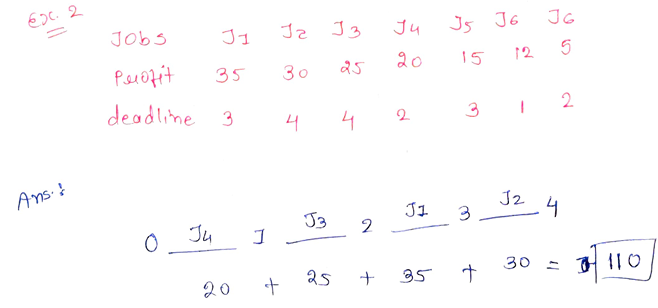 Ex. 2
Jobs J1 J2 J3 J4 J5 J6 J6
Profit 35 30 25 20 15 12 5
deadline 3 4 4 2 3 1 2
Ans.:
0 J4 1 J3 2 J1 3 J2 4
20 + 25 + 35 + 30 = 110